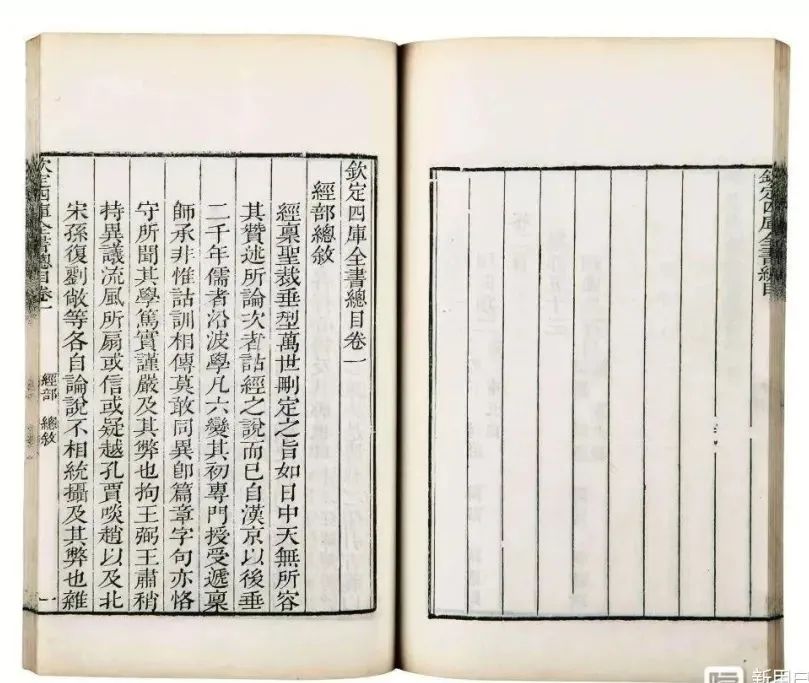 欽定四庫全書總目
欽定四庫全書總目卷一
經部總敘
經稟聖裁垂型萬世刪定之旨如日中天無所容
其贊述所論次者詁經之說而已自漢京以後垂
二千年儒者沿波學凡六變其初專門授受遞稟
師承非惟詁訓相傳莫敢同異卽篇章字句亦恪
守所聞其學篤實謹嚴及其弊也拘王弼王肅稍
持異議流風所扇或信或疑越孔賈啖趙以及北
宋孫復劉敞等各自論說不相統攝及其弊也雜
欽定四庫全書總目卷一 經部 總敘 一